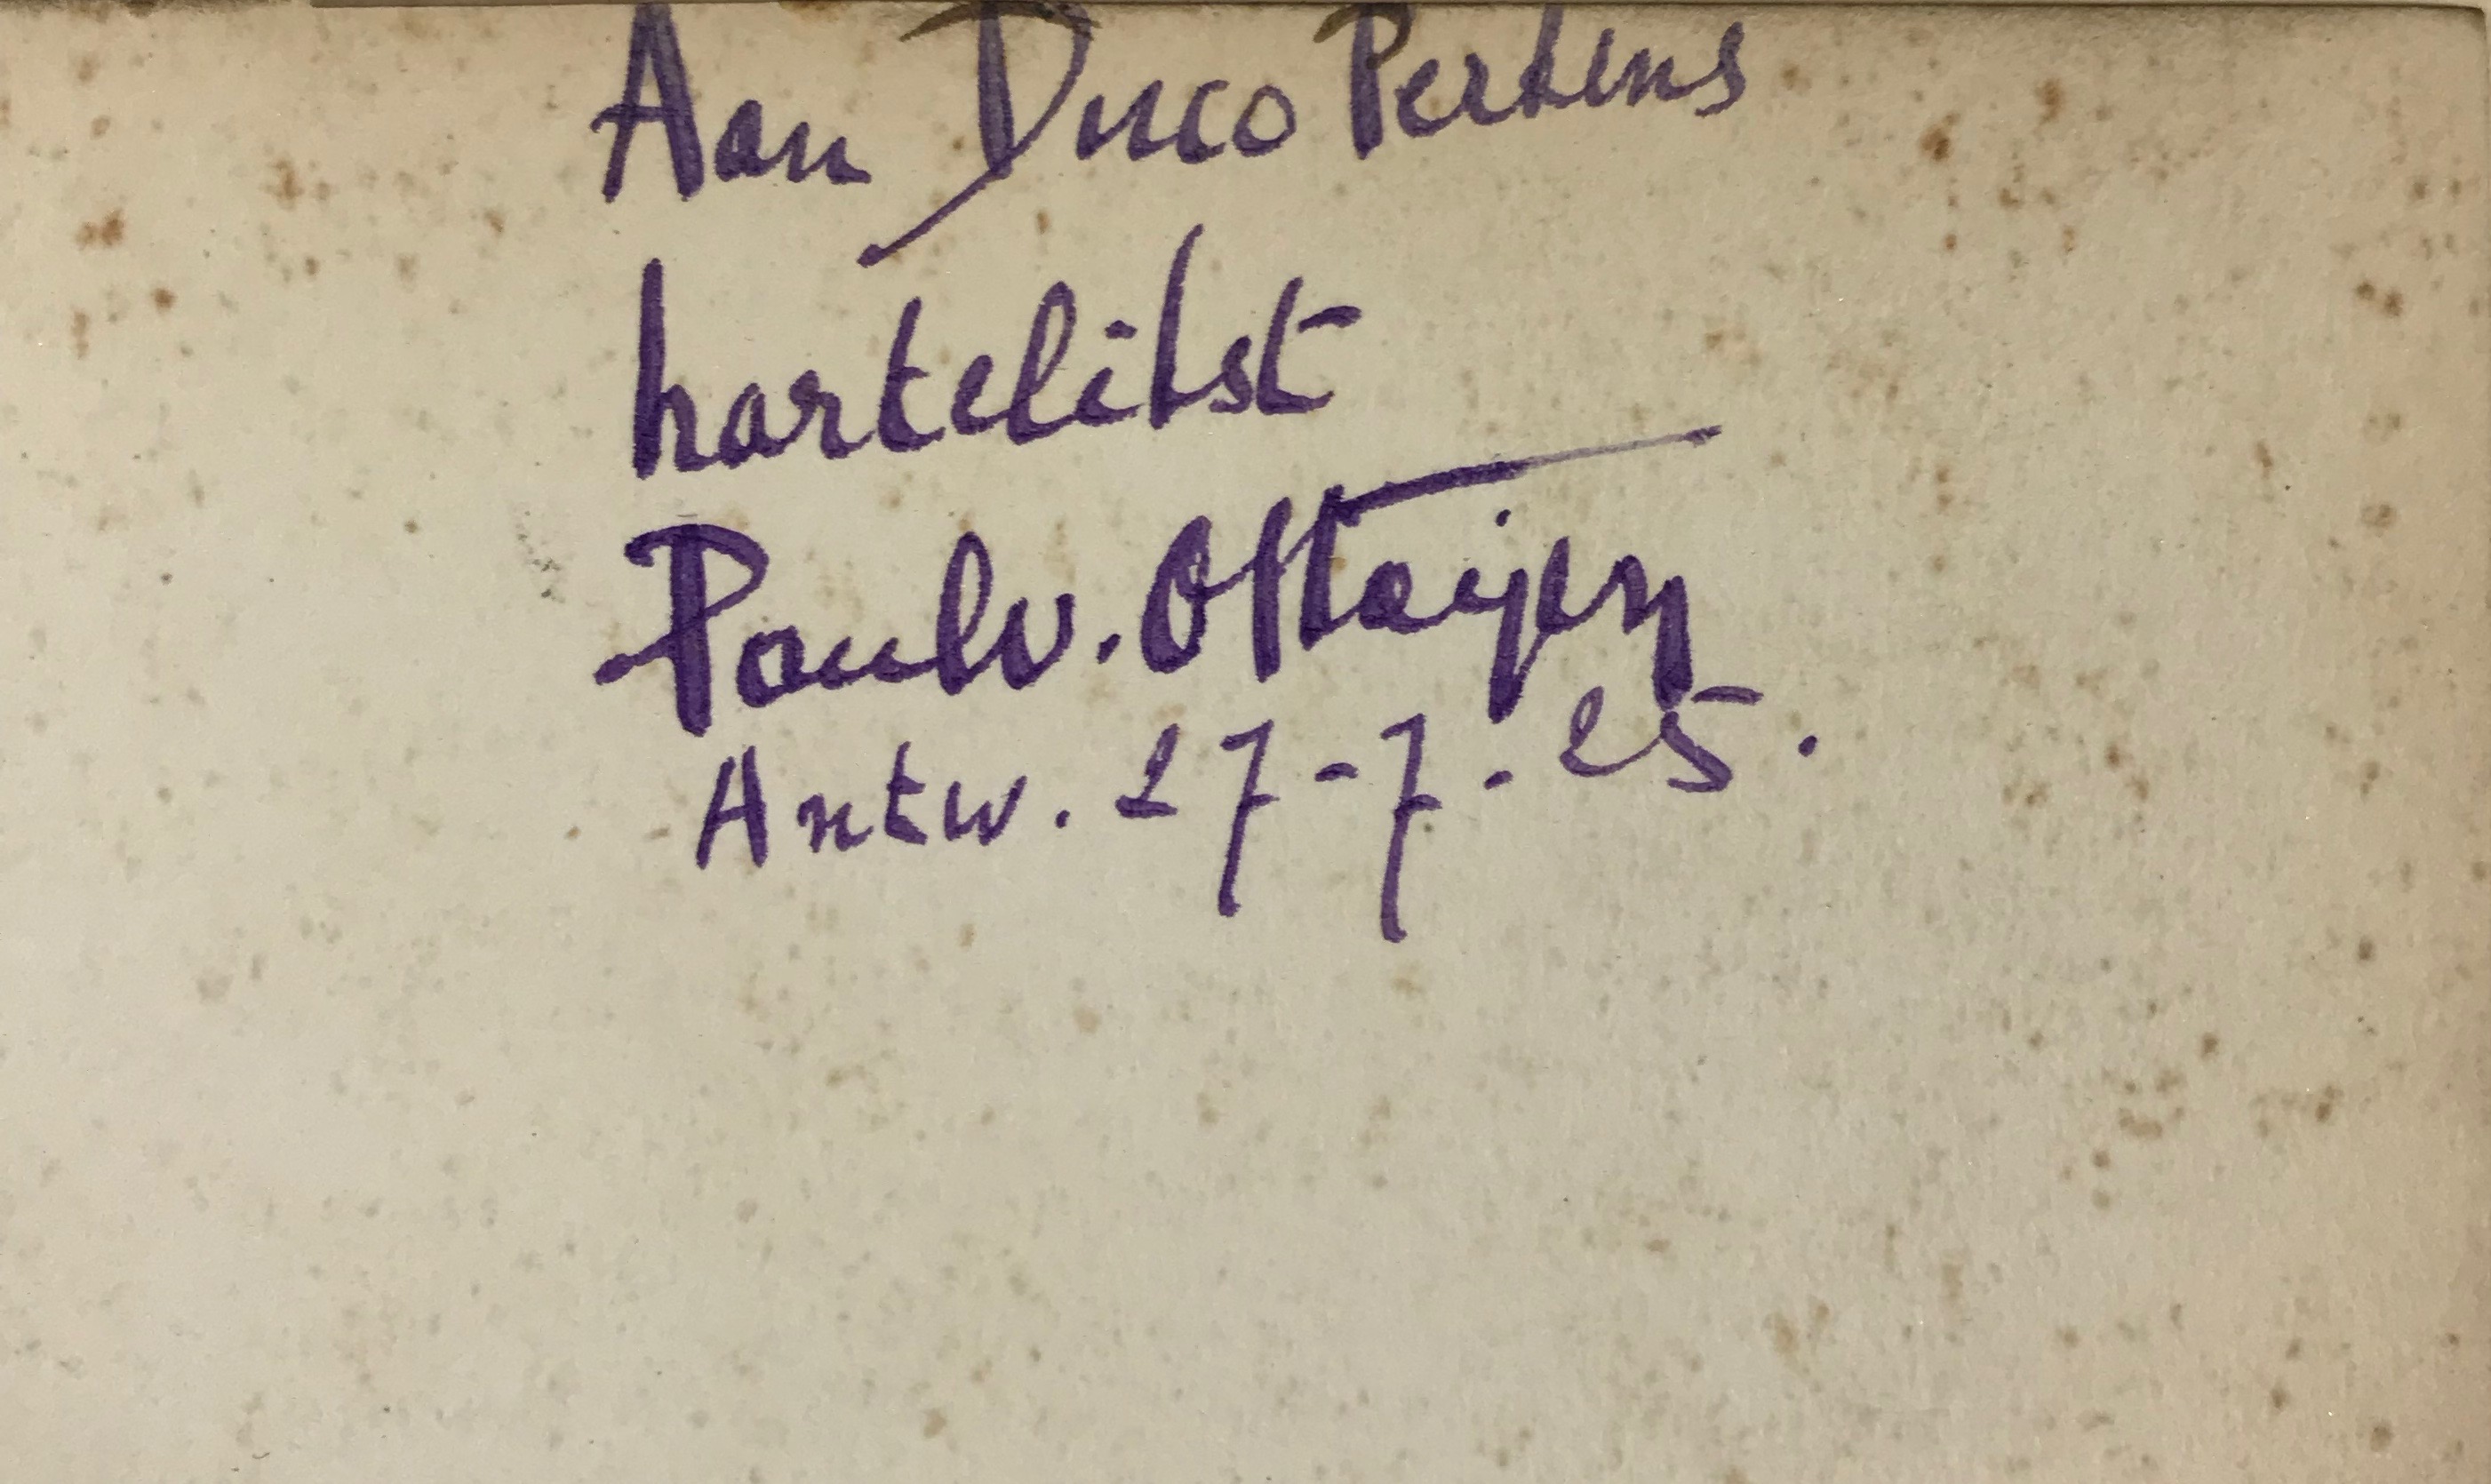 Aan Duco Perkens
hartelikst
Paul v. Ostaijen
Antw. 27-7-25.